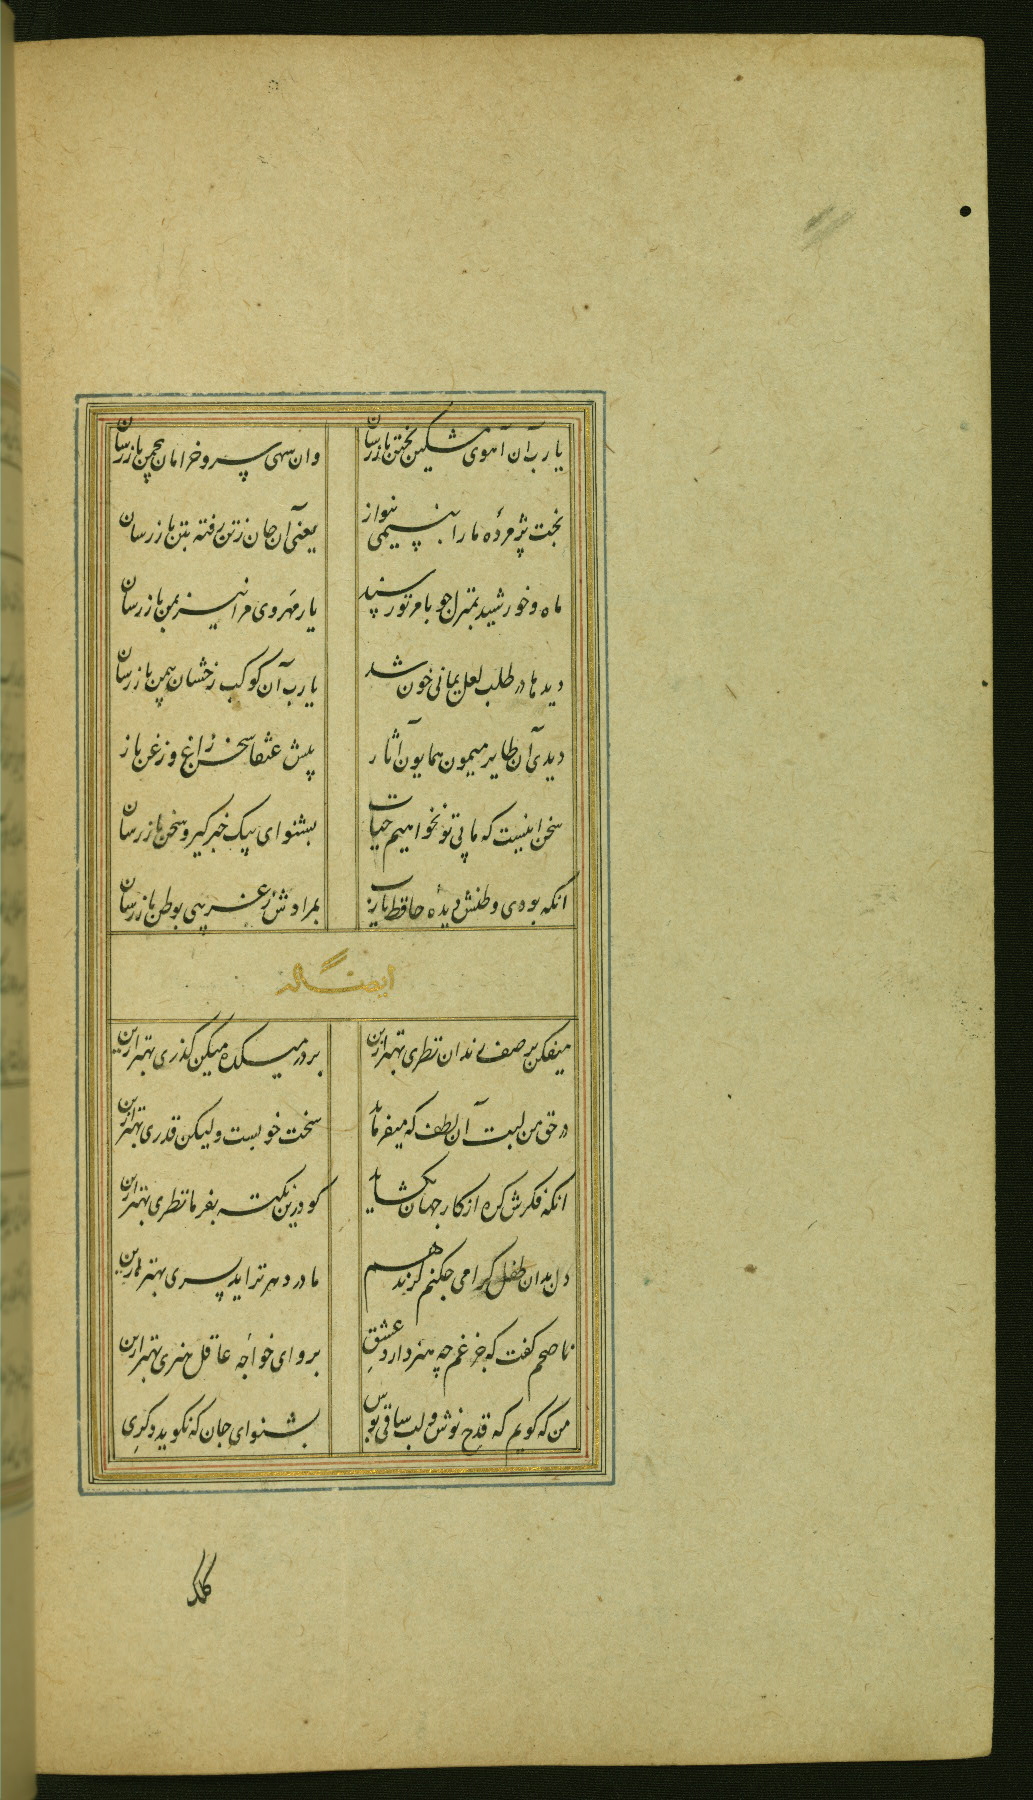 یارب آن آهوی مشکین بختن بازرسان وان سهی سرو خرامان بچمن بازرسان
بخت پژمردهٔ ما را بنسیمی بنواز یعنی آن جان زتن رفته بتن بازرسان
ماه و خورشید بمنزل چو بامر تو رسند یار مهروی مرا نیز بمن بازرسان
دیدها در طلب لعل یمانی خون شد یارب آن کوکب رخشان بیمن بازرسان
دیدی آن طایر میمون همایون آثار پیش عنقا سخن زاغ و زغن باز
سخن اینست که ما بی تو نخواهیم حیات بشنو ای پیک خبر گیر و سخن بازرسان
آنکه بودی وطنش دیدهٔ حافظ یارب بمرادش ز غریبی بوطن بازرسان
ایضاً له
میفکن بر صف رندان نظری بهتر ازین بر در میکده میکن گذری بهتر ازین
در حق من لبت آن لطف که میفرماید سخت خوبست ولیکن قدری بهتر ازین
آنکه فکرش گره از کار جهان بگشاید گو درین نکته بفرما نظری بهتر ازین
دل بدان طفل گرامی چکنم گر ندهم مادر دهر نزاید پسری بهتر ازین
ناصحم گفت که جز غم چه هنر دارد عشق برو ای خواجه عاقل هنری بهتر ازین
من که گویم که قدح نوش و لب ساقی بوس بشنو ای جان که نگوید دگری
کلک